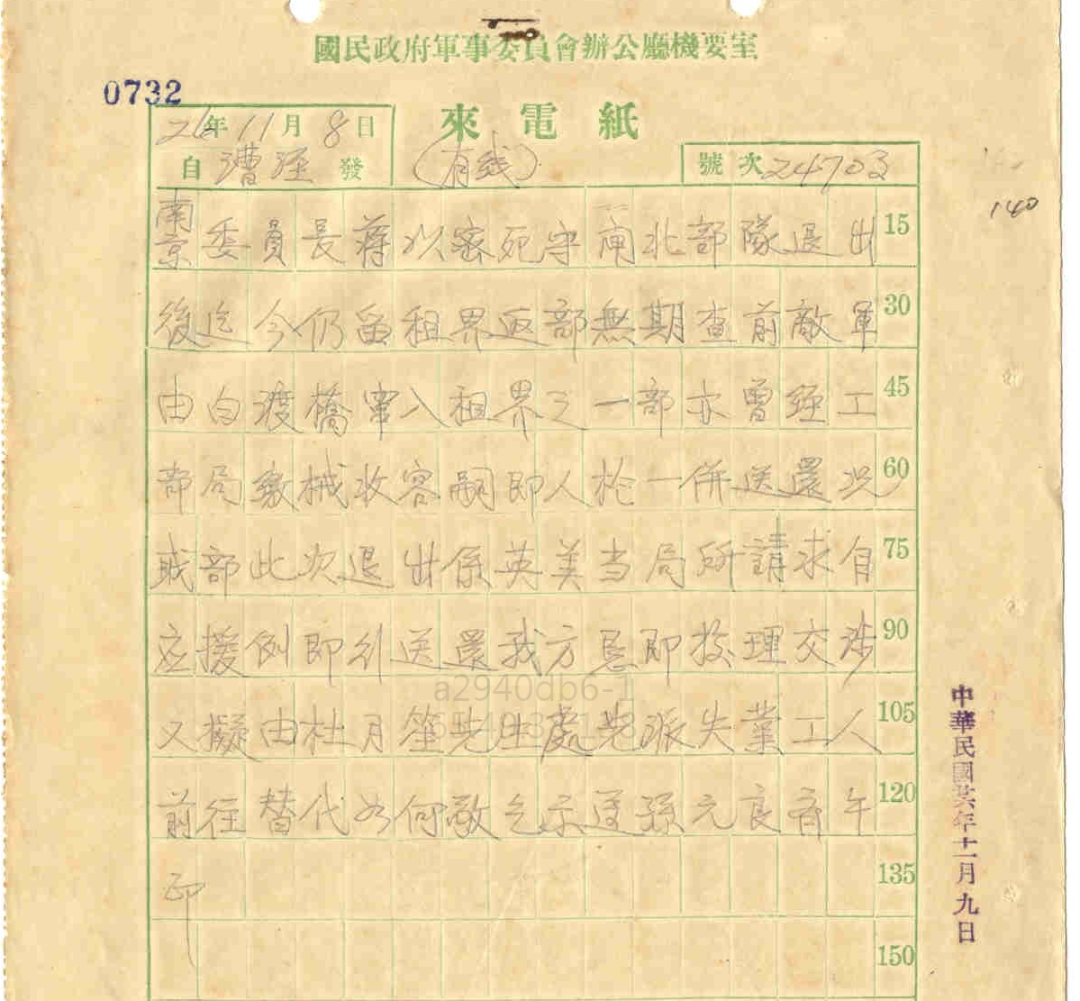 國民政府軍事委員會辦公廳機要室
0732
來電紙
26年11月8日
自漕涇發
(有綫)
號次24703
140
南京委員長蔣以密死守閘北部隊退出 15
後迄今仍留租界返部無期查前敵軍 30
由白渡橋竄入租界之一部亦曾經工 45
部局繳械收容嗣即人枪一併送還况 60
我部此次退出係英美当局所請求自 75
应援例即行送還我方懇即按理交涉 90
又擬由杜月笙先生處先派失業工人 105
前往替代如何敬乞示遵孫元良齊午 120
印 135
150
中華民國廿六年十一月九日
a2940db6-1